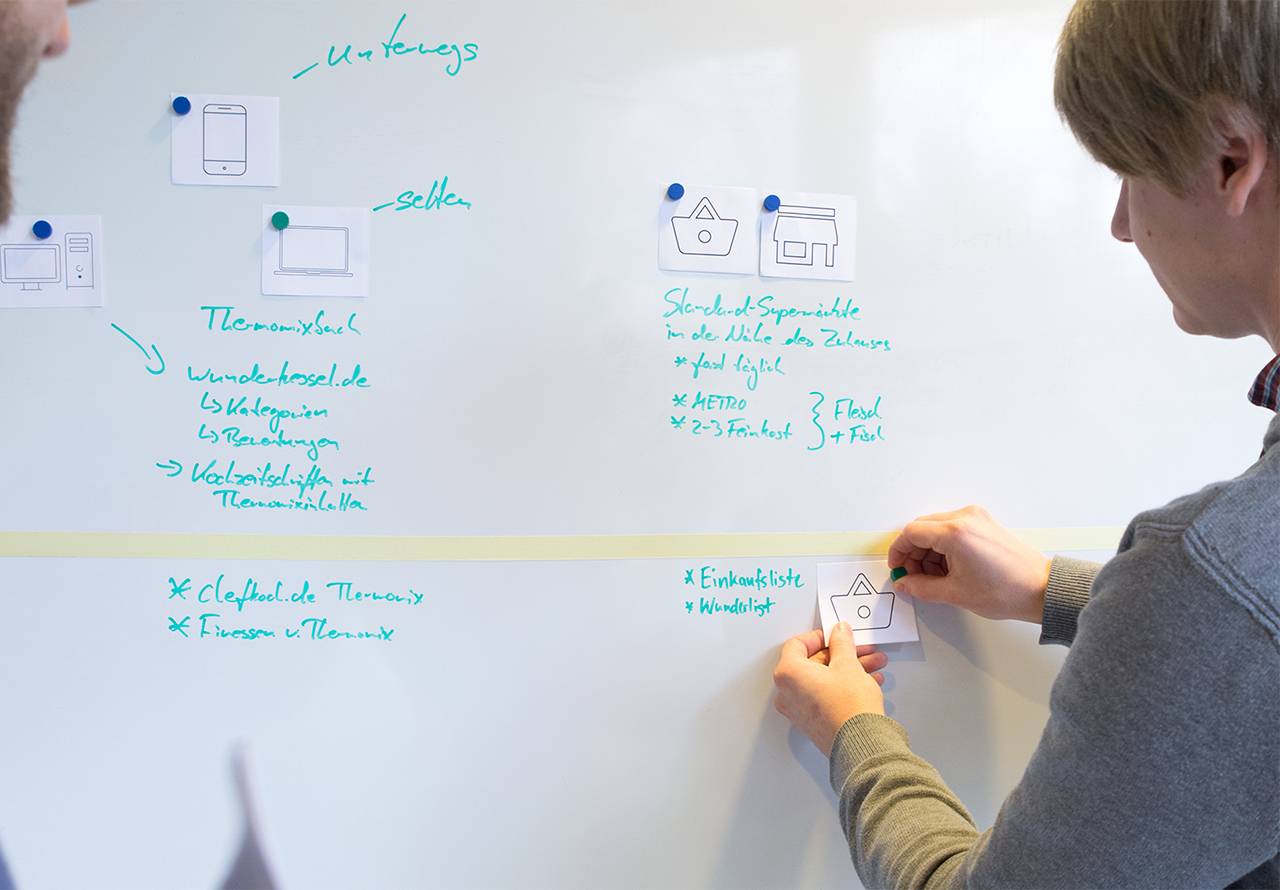 – unterwegs
– selten
Thermomixbuch
wunderkessel.de
↳ Kategorien
↳ Bewertungen
→ Kochzeitschriften mit
Thermomixinhalten
Standard-Supermärkte
in der Nähe des Zuhauses
* fast täglich
* METRO
* 2-3 Feinkost
} Fleisch
+ Fisch
* Chefkoch.de Thermomix
* Finessen v. Thermomix
* Einkaufsliste
* Wunderlist